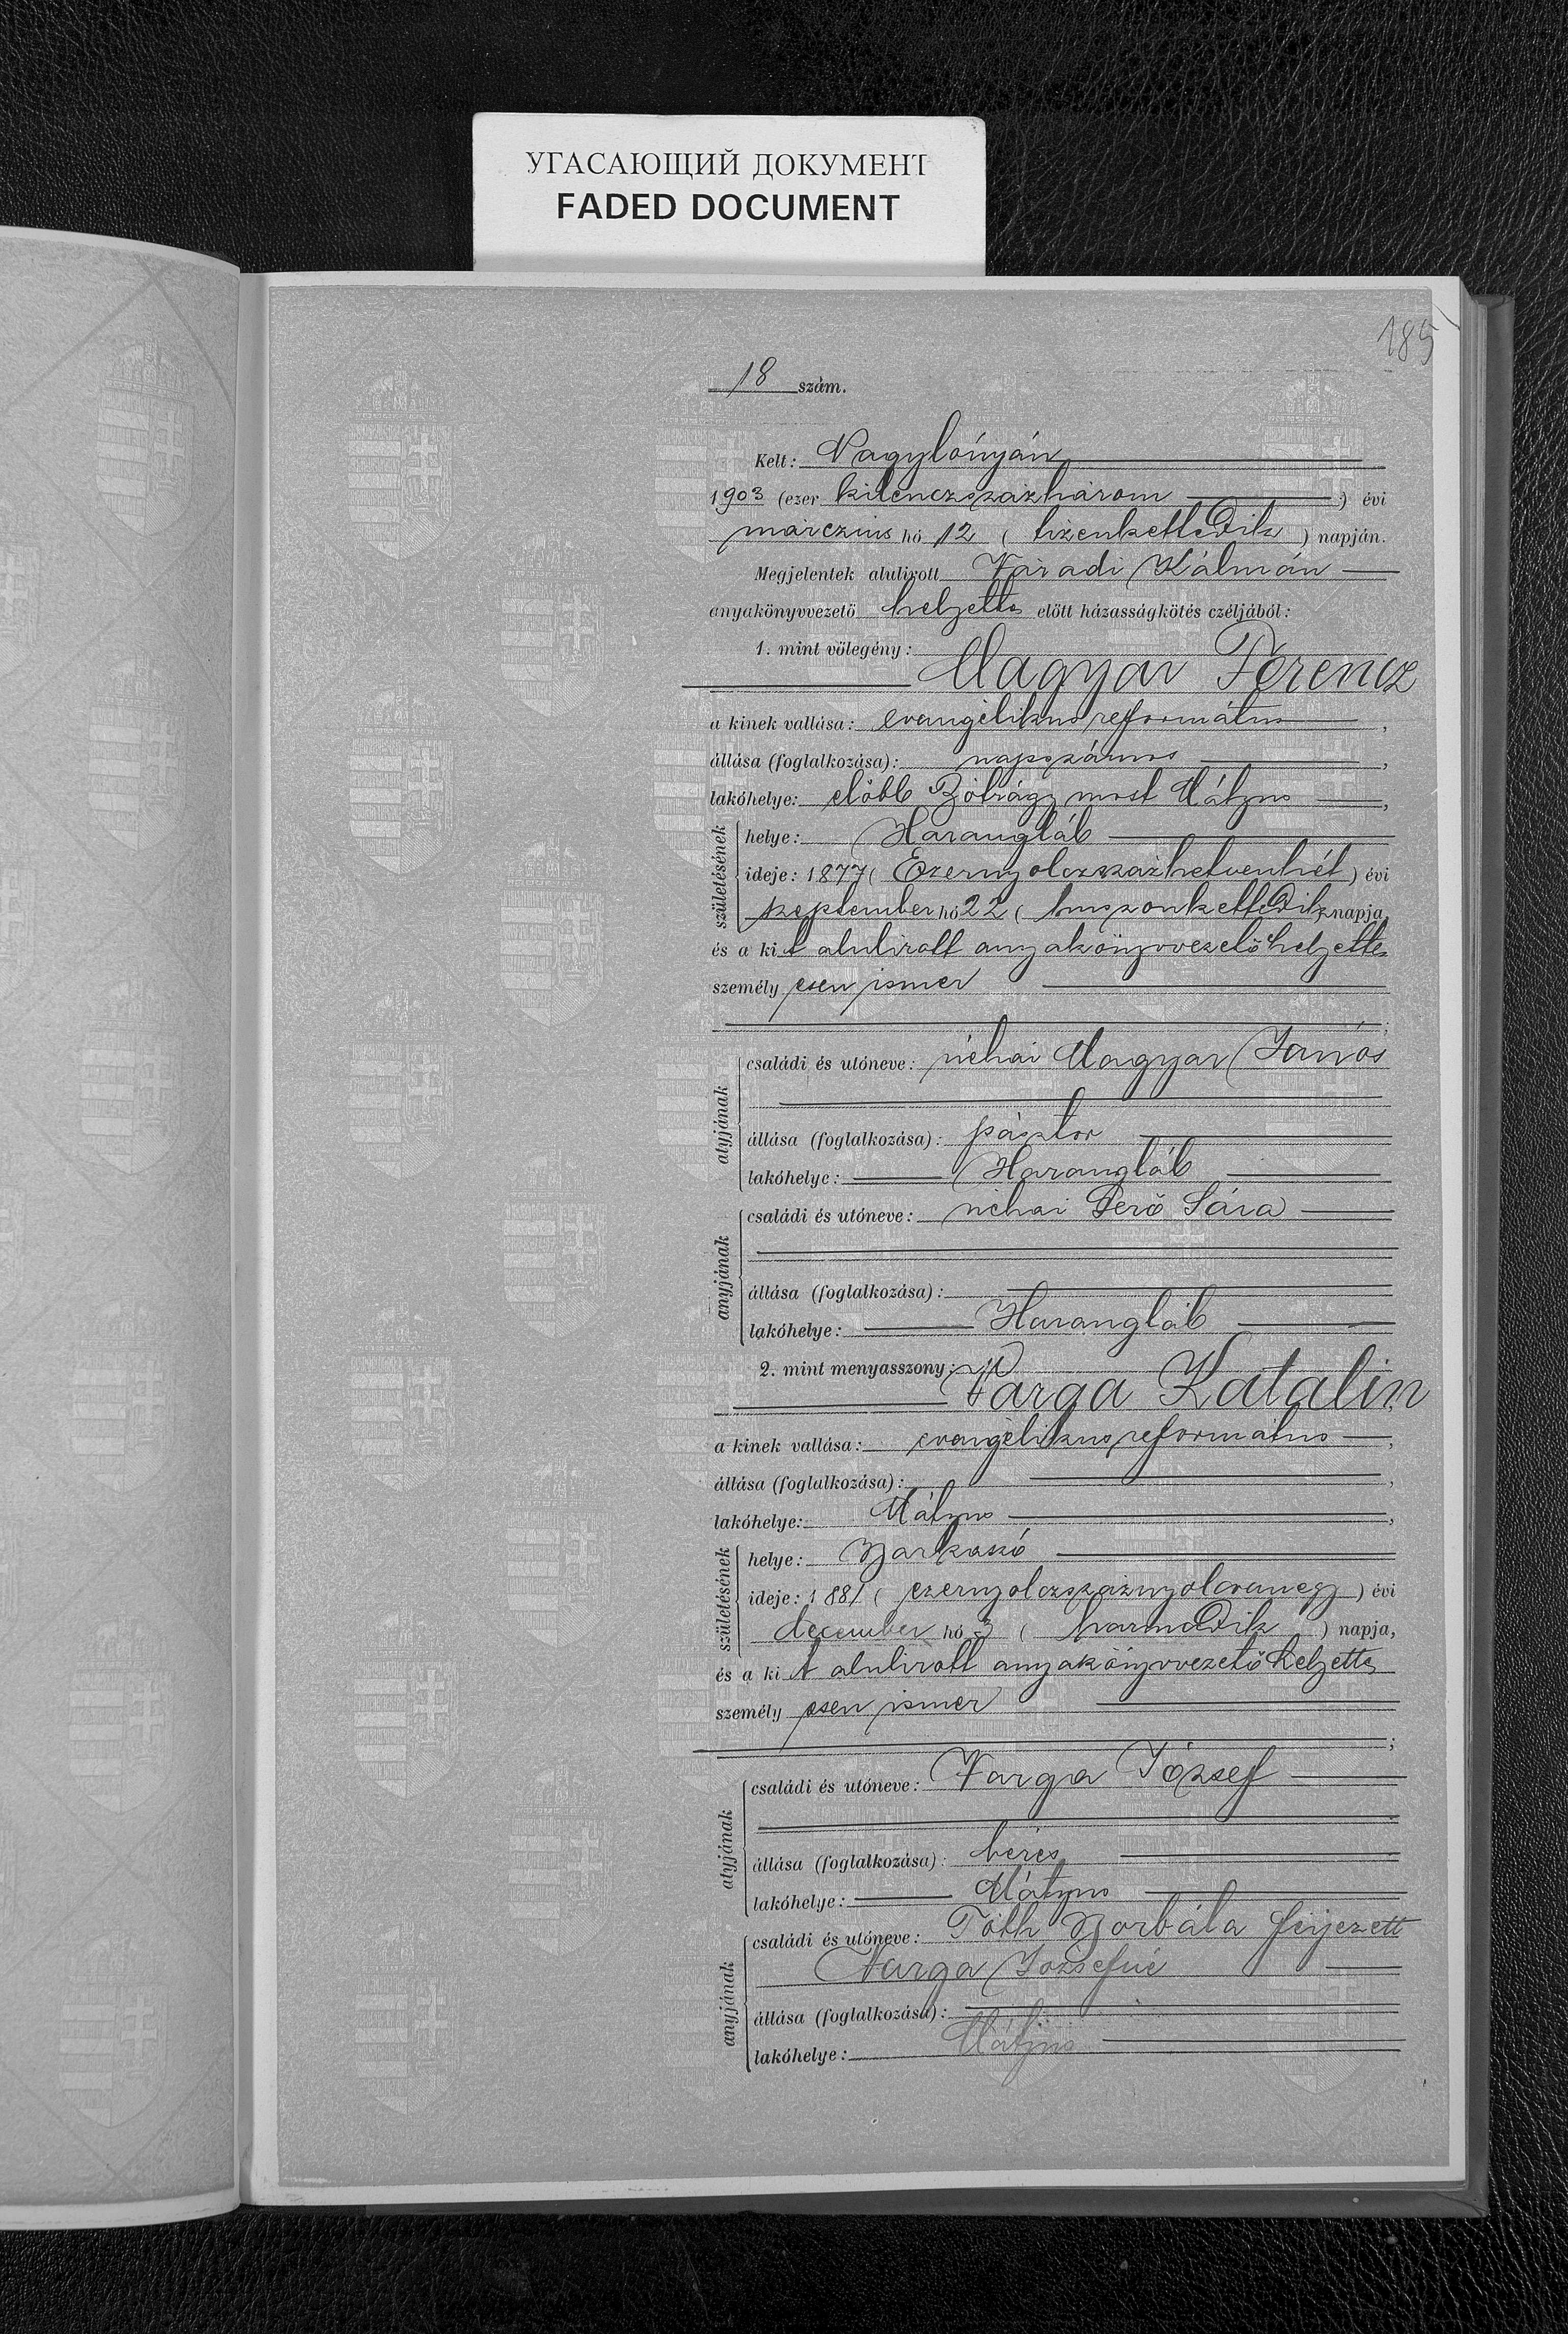 УГАСАЮЩИЙ ДОКУМЕНТ
FADED DOCUMENT
185
18 szám.
Kelt: Nagylónyán
1903 (ezer kilenczszázhárom) évi
márczius hó 12 (tizenkettedik) napján.
Megjelentek alulirott Váradi Kálmán
anyakönyvvezető helyettes előtt házasságkötés czéljából:
1. mint vőlegény:
Magyar Ferencz
a kinek vallása: evangélikus református,
állása (foglalkozása): napszámos,
lakóhelye: előbb Bótrágy most Mátyus,
születésének
helye: Harangláb
ideje: 1877 (Ezernyolczszázhetvenhét) évi
szeptember hó 22 (huszonkettedik) napja,
és a kit alulirott anyakönyvvezető helyettes
személyesen ismer
;
atyjának
családi és utóneve: néhai Magyar János
állása (foglalkozása): pásztor
lakóhelye: Harangláb
anyjának
családi és utóneve: néhai Sára
állása (foglalkozása):
lakóhelye: Harangláb
2. mint menyasszony:
Varga Katalin,
a kinek vallása: evangélikus református,
állása (foglalkozása):,
lakóhelye: Mátyus,
születésének
helye: Barkaszó
ideje: 1881 (ezernyolczszáznyolcvanegy) évi
december hó 3 (harmadik) napja,
és a kit alulirott anyakönyvvezető helyettes
személyesen ismer
;
atyjának
családi és utóneve: Varga József
állása (foglalkozása): béres
lakóhelye: Mátyus
anyjának
családi és utóneve: Tóth Borbála férjezett
Varga Józsefné
állása (foglalkozása):
lakóhelye: Mátyus